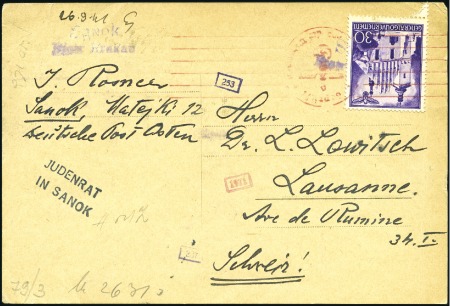 26.9.41
Sanok
Krakau
30
GENERALGOUVERNEMENT
I. Roemer
Sanok, Matejki 12
Deutsche Post Osten
253
Herrn
Dr. L. Lowitsch
Lausanne.
Ave de Rumine
34. I.
Schweiz!
JUDENRAT
IN SANOK
79/3